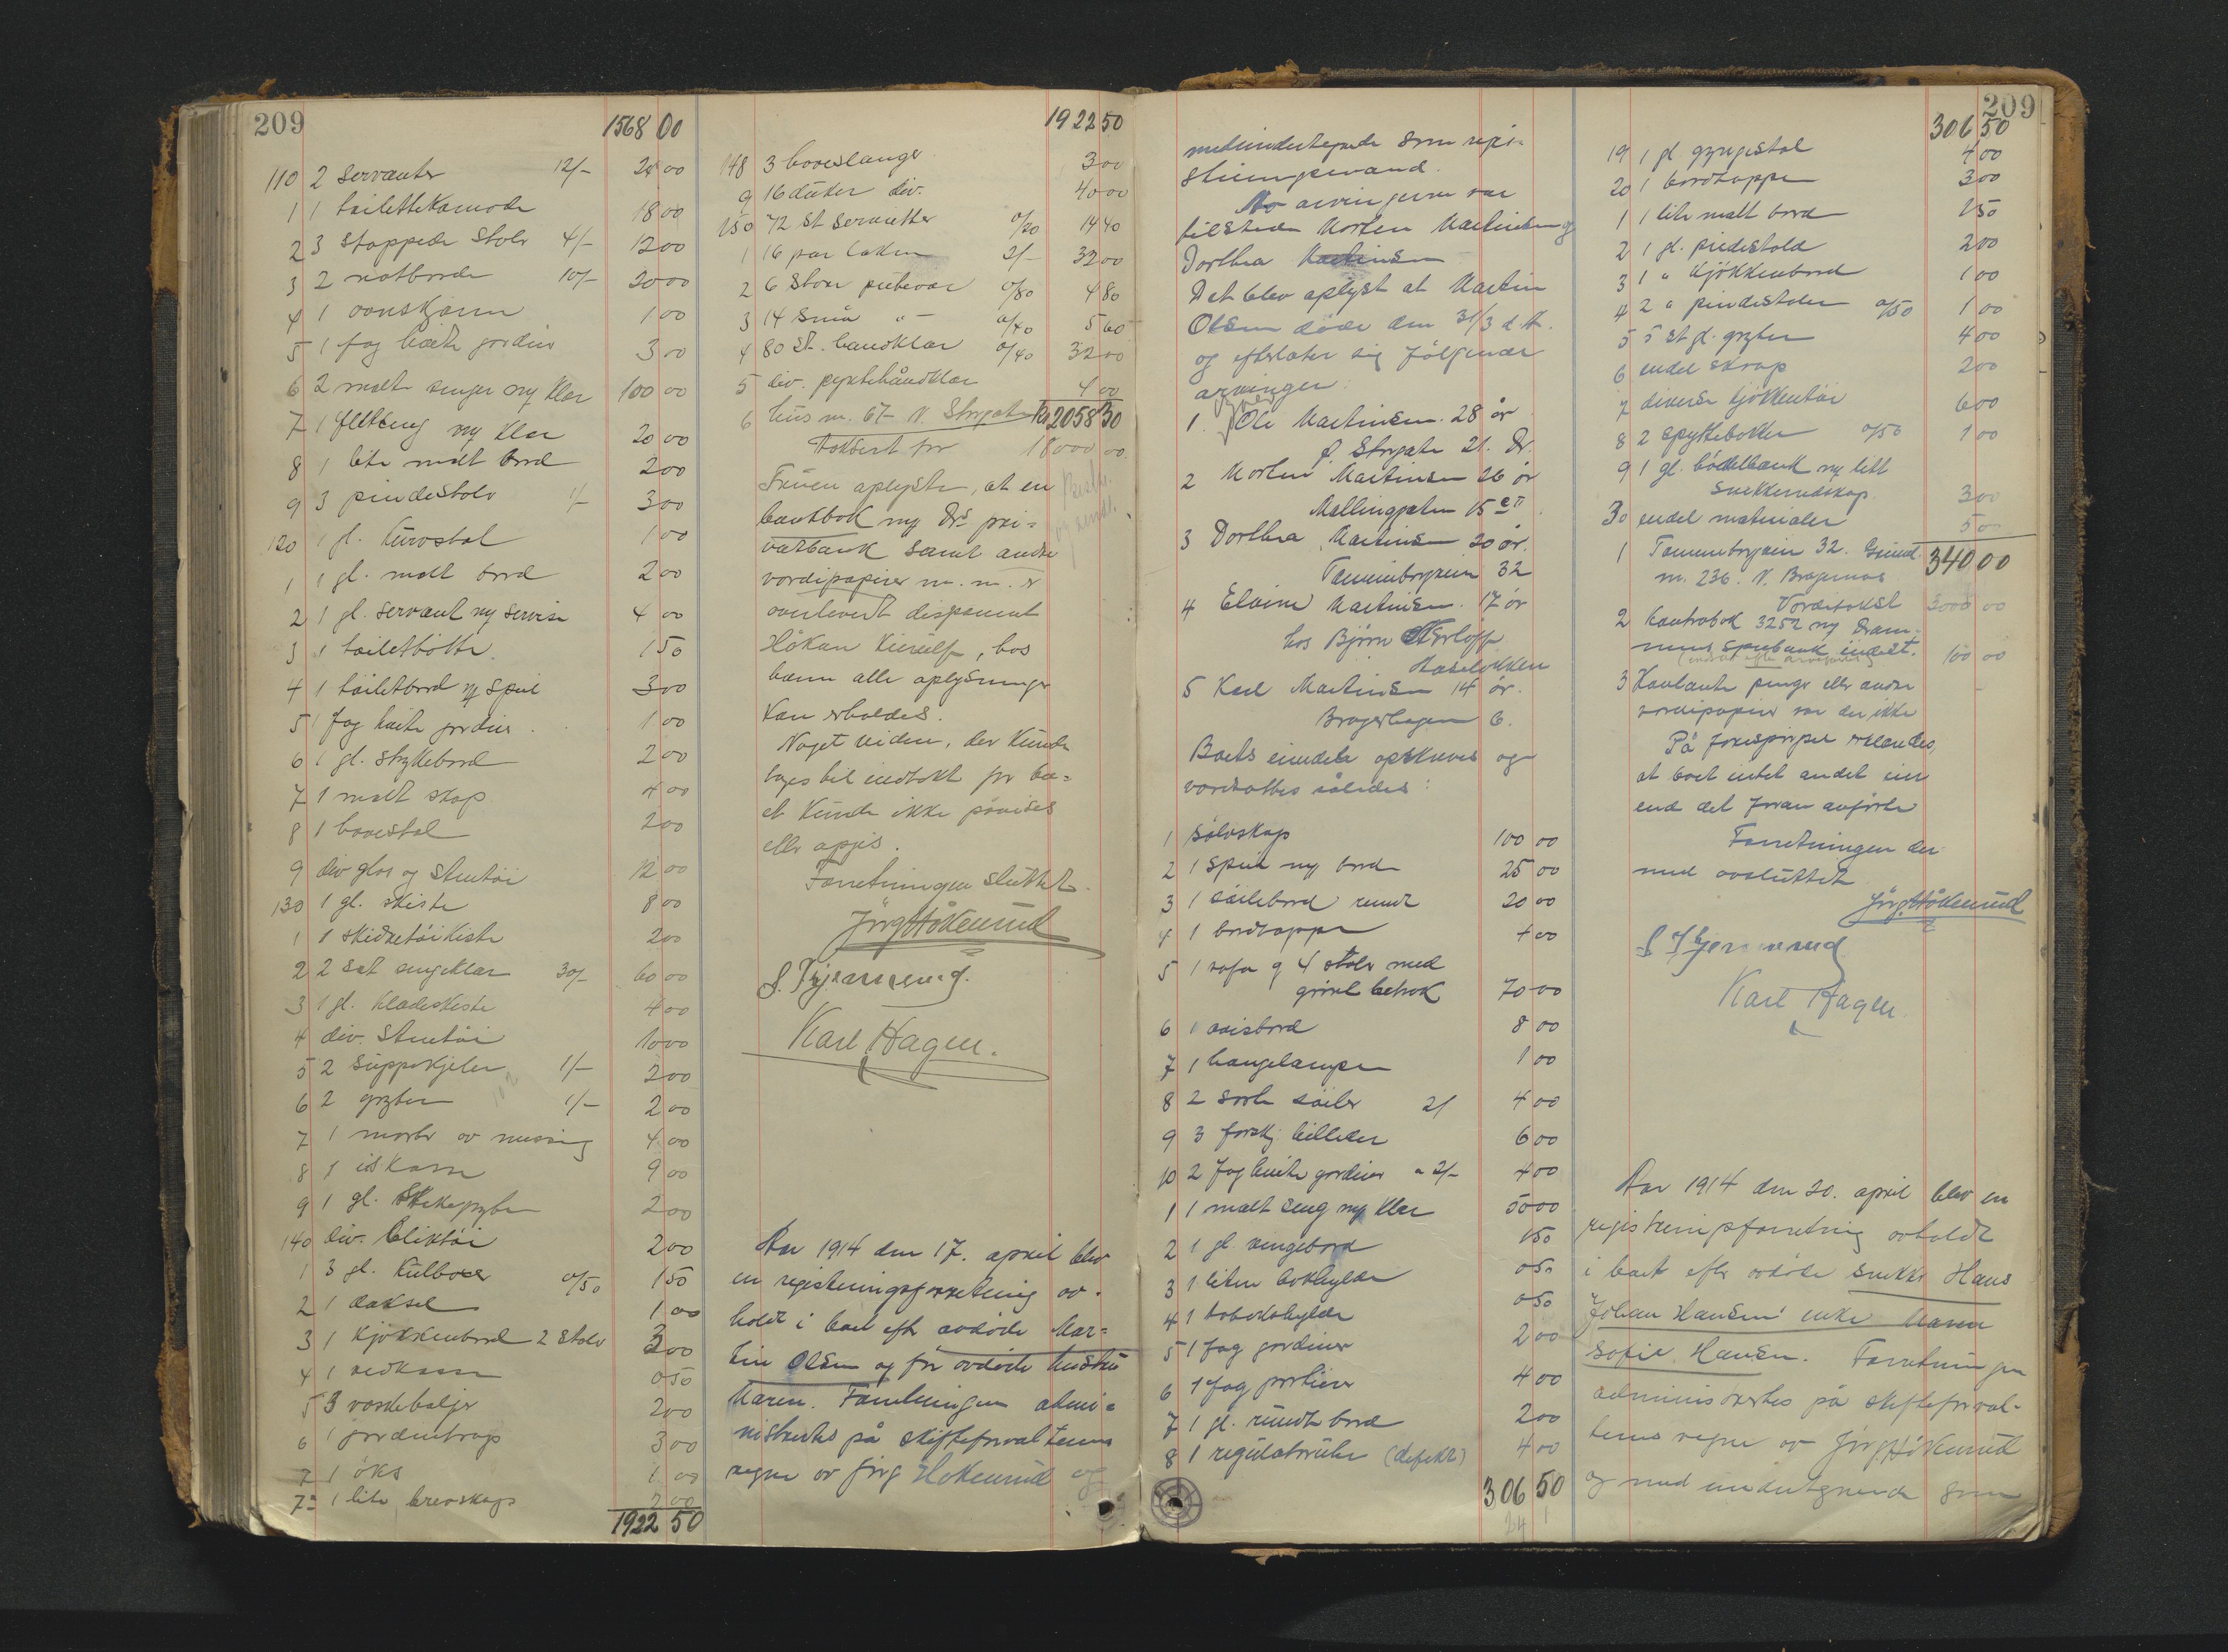 209
1568 00
110 2 servanter 12/- 24 00
1 1 toilettekomode 18 00
2 3 stoppede stoler 4/- 12 00
3 2 natborde 10/- 20 00
4 1 vanskanne 1 00
5 1 fag hvite gardiner 3 00
6 2 malte senger m/ klær 100 00
7 1 feltseng m/ klær 20 00
8 1 lite malt bord 2 00
9 3 pindestoler 1/- 3 00
120 1 gl. kurvstol 1 00
1 1 gl. malt bord 2 00
2 1 gl. servant m/ servise 4 00
3 1 toiletbøtte 1 50
4 1 toiletbord m/ speil 3 00
5 1 fag hvite gardiner 1 00
6 1 gl. strykebord 2 00
7 1 malt skap 4 00
8 1 havestol 2 00
9 div glas og stentøi 12 00
130 1 gl. kiste 8 00
1 1 skidentøikiste 2 00
2 2 sæt sengeklær 30/- 60 00
3 1 gl. klædeskiste 4 00
4 div. stentøi 10 00
5 2 suppekjeler 1/- 2 00
6 2 gryter 1/- 2 00
7 1 morter av messing 4 00
8 1 iskasse 9 00
9 1 gl. stekegryte 2 00
140 div. bliktøi 2 00
1 3 gl. kulbokser o/50 1 50
2 1 daksel 1 00
3 1 kjøkkenbord 2 stoler 3 00
4 1 vedkasse 0 50
5 3 vaskebaljer 2 00
6 1 gardintrap 3 00
7 1 øks 1 00
7a 1 lite brevskap 2 00
1922 50
1922 50
148 3 haveslanger 3 00
9 16 duker div. 40 00
150 72 st servietter o/20 14 40
1 16 par laken 2/- 32 00
2 6 store putevar o/80 4 80
3 14 små " - o/40 5 60
4 80 st. håndklær o/40 32 00
5 div. pyntehåndklær 4 00
6 hus nr. 67 N. Strgate kr 2058 30
Taksert for 18000 00
Fruen oplyste, at en
bankbok m/ Drs pri=
vatbank samt andre
værdipapirer m. m. er
overlevert disponent
Håkon Kierulf, hos
ham alle oplysninger
kan erholdes.
Noget videre, der kunde
tages til indtækt for bo=
et kunde ikke påvises
eller opgis.
Forretningen sluttet.
Jörg Håkenrud
Karl Hagen.
Aar 1914 den 17. april blev
en registreringsforretning av=
holdt i boet efter avdøde Mar=
tin Olsen og før avdøde hustru
Maren. Forretningen admi=
nistrertes på skifteforvalterens
vegne av Jörg Håkenrud og
209
medundertegnede som regi=
streringsvand.
Av arvingerne var
tilstede Morten Martinsen og
Dorthea Martinsen
Det blev oplyst at Martin
Olsen døde den 31/3 d. A.
og efterlater sig følgende
arvinger:
1. Ole Martinsen. 28 år
Ø. Strgate 21. Dr.
2 Morten Martinsen 26 år
Mallinggaten 15 c II
3 Dorthea Martinsen 20 år.
Tømmerbrygaten 32
4 Elvine Martinsen. 17 år
hos Bjørn
5 Karl Martinsen 14 år.
Bragerhagen 6.
Boets eiendele opskreves og
værdsattes således:
1 sølvskap 100 00
2 1 speil m/ bord 25 00
3 1 søilebord rundt 20 00
4 1 bordteppe 4 00
5 1 sofa og 4 stoler med
grønt betræk 70 00
6 1 avisbord 8 00
7 1 hængelampe 1 00
8 2 sorte søiler 2/ 4 00
9 3 forskj billeder 6 00
10 2 fag hvite gardiner a 2/- 4 00
1 1 malt seng m/ klær 50 00
2 1 gl. sengebord 1 50
3 1 liten bokhylde 0 50
4 1 tobakshylde 0 50
5 1 fag gardiner 2 00
6 1 fag portierer 4 00
7 1 gl. rundt bord 2 00
8 1 regulatoruhr (defekt) 4 00
306 50
306 50
19 1 gl. gyngestol 4 00
20 1 bordteppe 3 00
1 1 lite malt bord 2 50
2 1 gl. pindestold 2 00
3 1 " kjøkkenbord 1 00
4 2 " pindestoler o/50 1 00
5 5 st gl. gryter 4 00
6 endel skrap 2 00
7 diverse kjøkkentøi 6 00
8 2 spyttebakker o/50 1 00
9 1 gl. høvelbænk m/ litt
snekkerredskap 3 00
30 endel materialer 5 00
340 00
1 Tømmerbrygaten 32. Grund
nr. 236. N. Bragernes
Værditakst 3000 00
2 Kontrabok 3252 m/ Dram=
mens sparebank indest. 100 00
3 Kontante penger eller andre
værdipapirer var der ikke
På forespørgsel erklærtes,
at boet intet andet eier
end det foran anførte
Forretningen der
med avsluttet
Jörg Håkenrud
Karl Hagen.
Aar 1914 den 20. april blev en
registreringsforretning avholdt
i boet efter avdøde snekker Hans
Johan Hansens enke Maren
Sofie Hansen. Forretningen
administrertes på skifteforval=
terens vegne av Jörg Håkenrud
og med undertegnede som